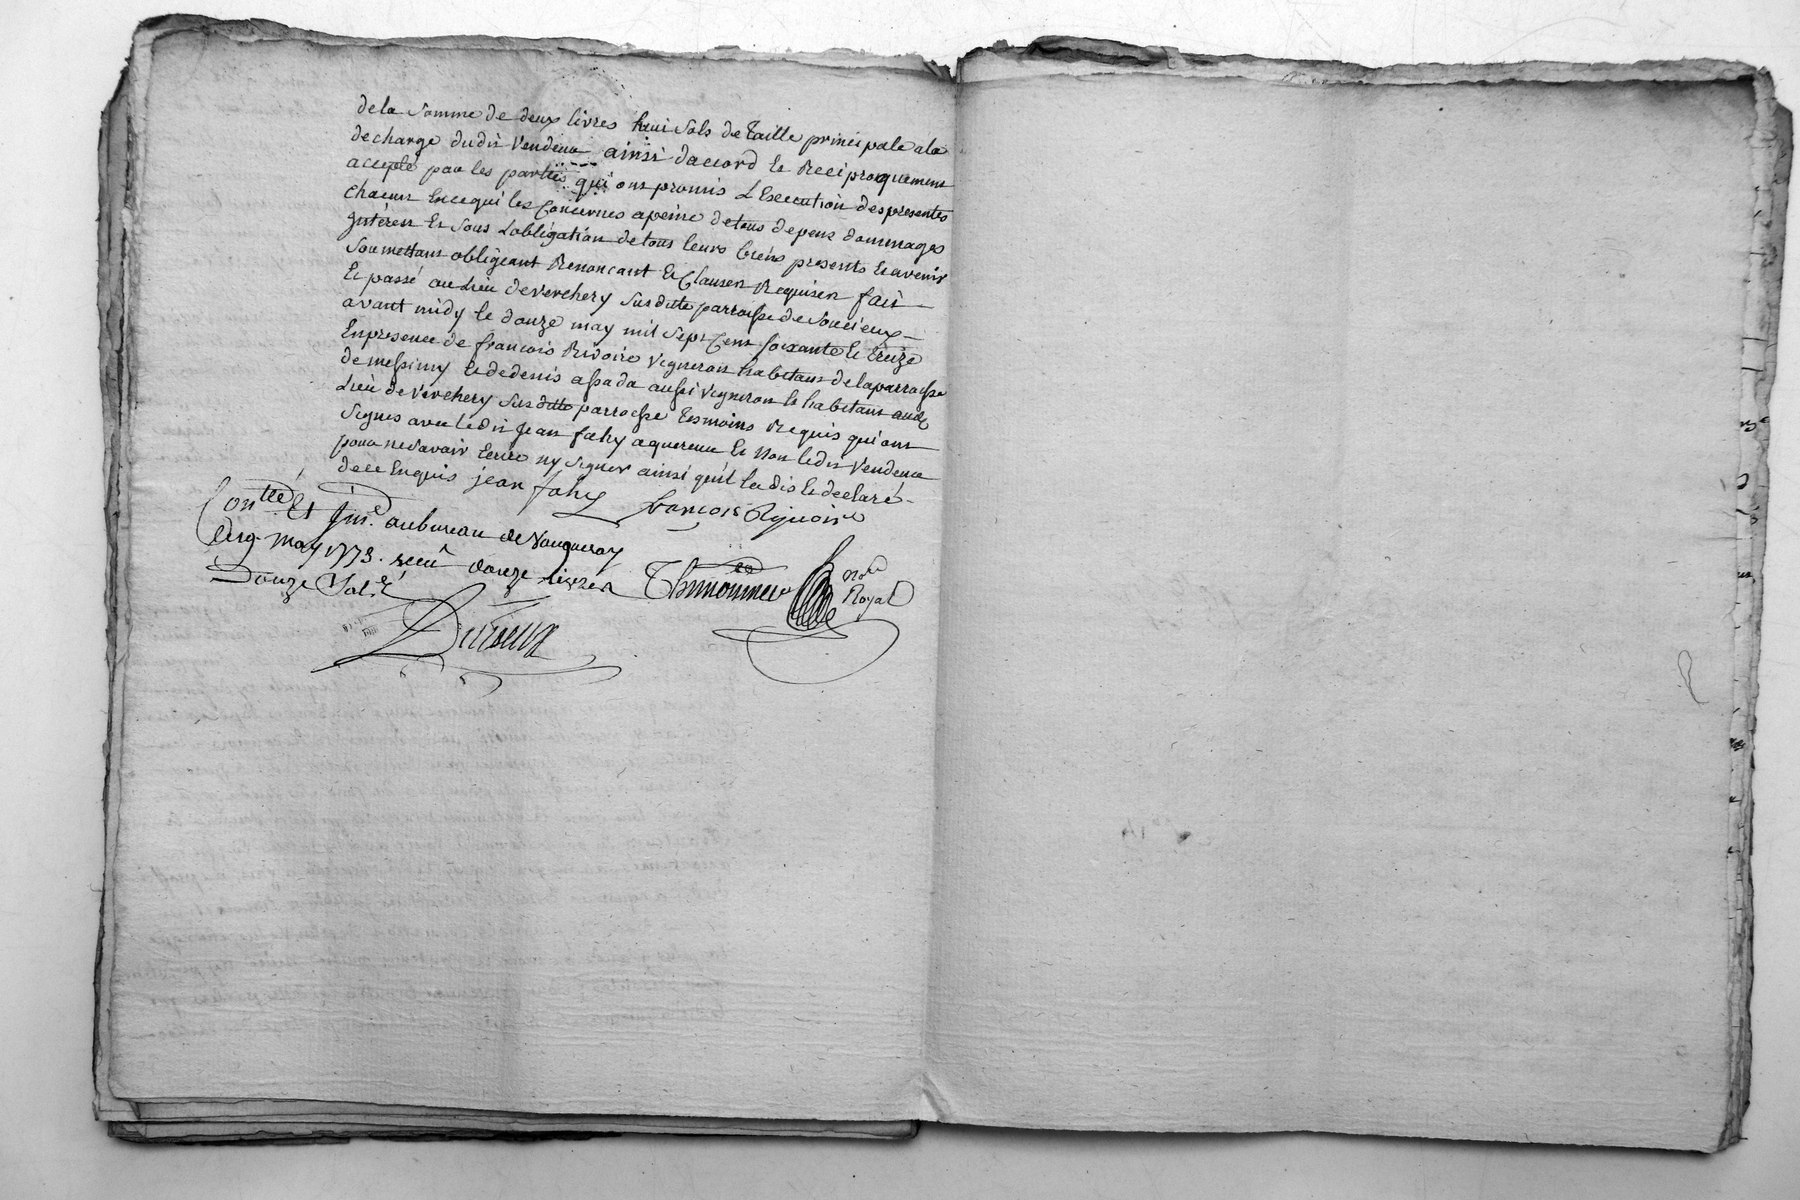 de la somme de deux livres huit sols de taille principale a la
decharge dudit vendeur ainsi d'accord et Reciproquement
accepté par les parties qui ont promis L'Execution des presentes
chacun En ce qui les Concernes a peine de tous depens dommages
Interest et sous L'obligation de tous leurs biens presents et avenir
soumettant obligeant Renonçant et Clauses Requises fait
Et passé au Lieu de Verchery susditte parroisse de Soucieux
avant midy le douze may mil sept Cent soixante et treize
En presence de francois Rivoire vigneron habitant de la parroisse
de messimy et de denis assada aussi vigneron et habitant audt
Lieu de Verchery susditte parroisse tesmoins Requis qui ont
signes avec ledit Jean fahy aquereur et Non ledit vendeur
pour ne savoir Ecrire ny signer ainsi qu'il la dit et declaré
de ce Enquis jean fahy
francois Rivoire
Contllé Et Insé au bureau de Vaugneray
Le 19 may 1773. recu douze livres
Douze Sols
Thimonnier nore
Royal